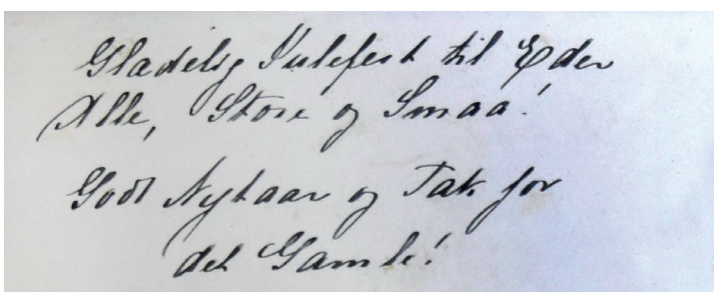 Gladelig Julefest til Eder
Alle, Store og Smaa!
Godt Nytaar og Tak for
det Gamle!